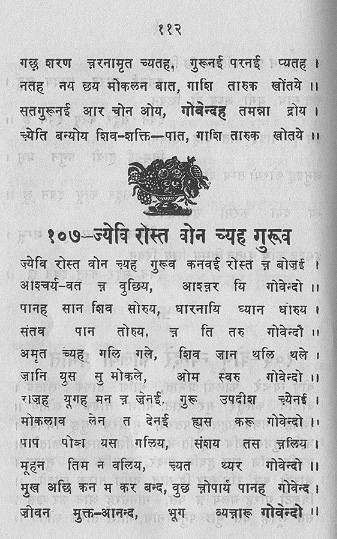 ११२
गछ़ शरण च़रनामृत च्यतह, गुरूनई परनई प्यतह
नतह नय छय मोकलन बात, गाशि तारुक खोंतये ।।
सतगुरूनई आर चोन ओय, गोवेन्दह तमन्ना द्रोय
च़्येति बन्योय शिव-शक्ति-पात, गाशि तारुक खोंतये ।।
१०७-ज्येवि रोस्त वोन च्यह गुरूव
ज्येवि रोस्त वोन च्यह गुरूव कनवई रोस्त च़ बोज़ई ।
आश्चर्य-वत च़ वुछिय, आश्च़र यि गोवेन्दो ।।
पानह सान शिव सोरुय, घारनायि ध्यान घोरुय
संतव पान तोरुय, च़ ति तरु गोवेन्दो ।।
अमृत च्यह गलि गले, शिव जान थलि थले ।
जानि युस सु मोकले, ओम स्वरु गोवेन्दो ।।
राज़ह यूगह मन च़ ज़ेनई. गुरू उपदीश च़्येनई
मोकलाव लेन त देनई ह्यस करू गोवेन्दो ।।
पाप पोञ यस गलिय, संशय तस च़लिय
मूहन तिम न वलिय, च्यत थ्यर गोवेन्दो ।।
मुख अछि कन म कर बन्द, वुछ च़ोपार्य पानह गोवेन्द ।
ज़ीवन मुक्त-आनन्द, भूग व्यच़ारू गोवेन्दो ।।